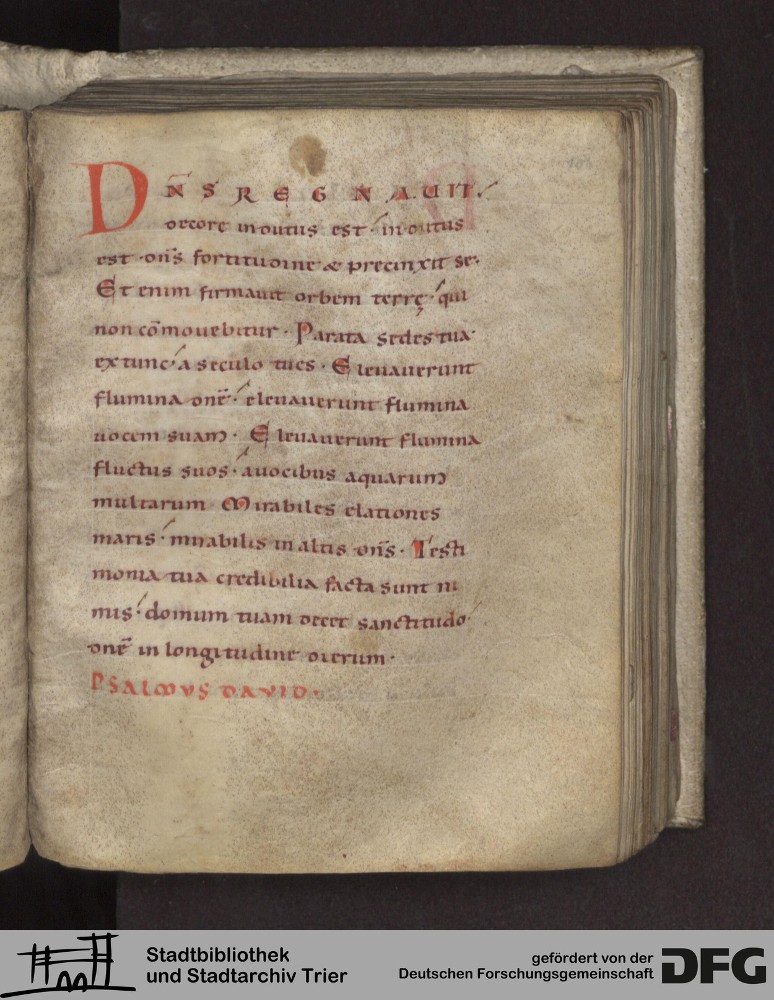 DN̄S REGNAUIT.
decore indutus est · indutus
est dn̄s fortitudine & precinxit se·
Et enim firmauit orbem terrę · qui
non cōmouebitur · Parata sedes tua·
ex tunc · a seculo tu es · Eleuauerunt
flumina dnē · eleuauerunt flumina
uocem suam · Eleuauerunt flumina
fluctus suos · auocibus aquarum
multarum Mirabiles elationes
maris · mirabilis in altis dn̄s · Testi
monia tua credibilia facta sunt ni
mis · domum tuam decet sanctitudo
dnē in longitudine dierum ·
PSALMVS DAVID ·
Stadtbibliothek
und Stadtarchiv Trier
gefördert von der
Deutschen Forschungsgemeinschaft
DFG